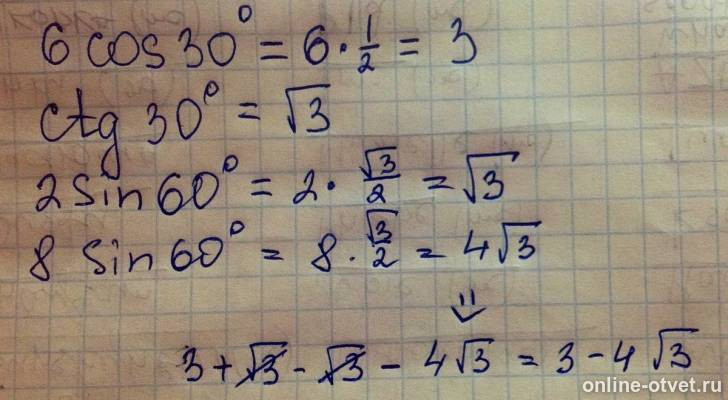 6 cos 30° = 6 · 1/2 = 3
ctg 30° = √3
2 sin 60° = 2 · √3/2 = √3
8 sin 60° = 8 · √3/2 = 4√3
⇓
3 + √3 - √3 - 4√3 = 3 - 4√3
online-otvet.ru